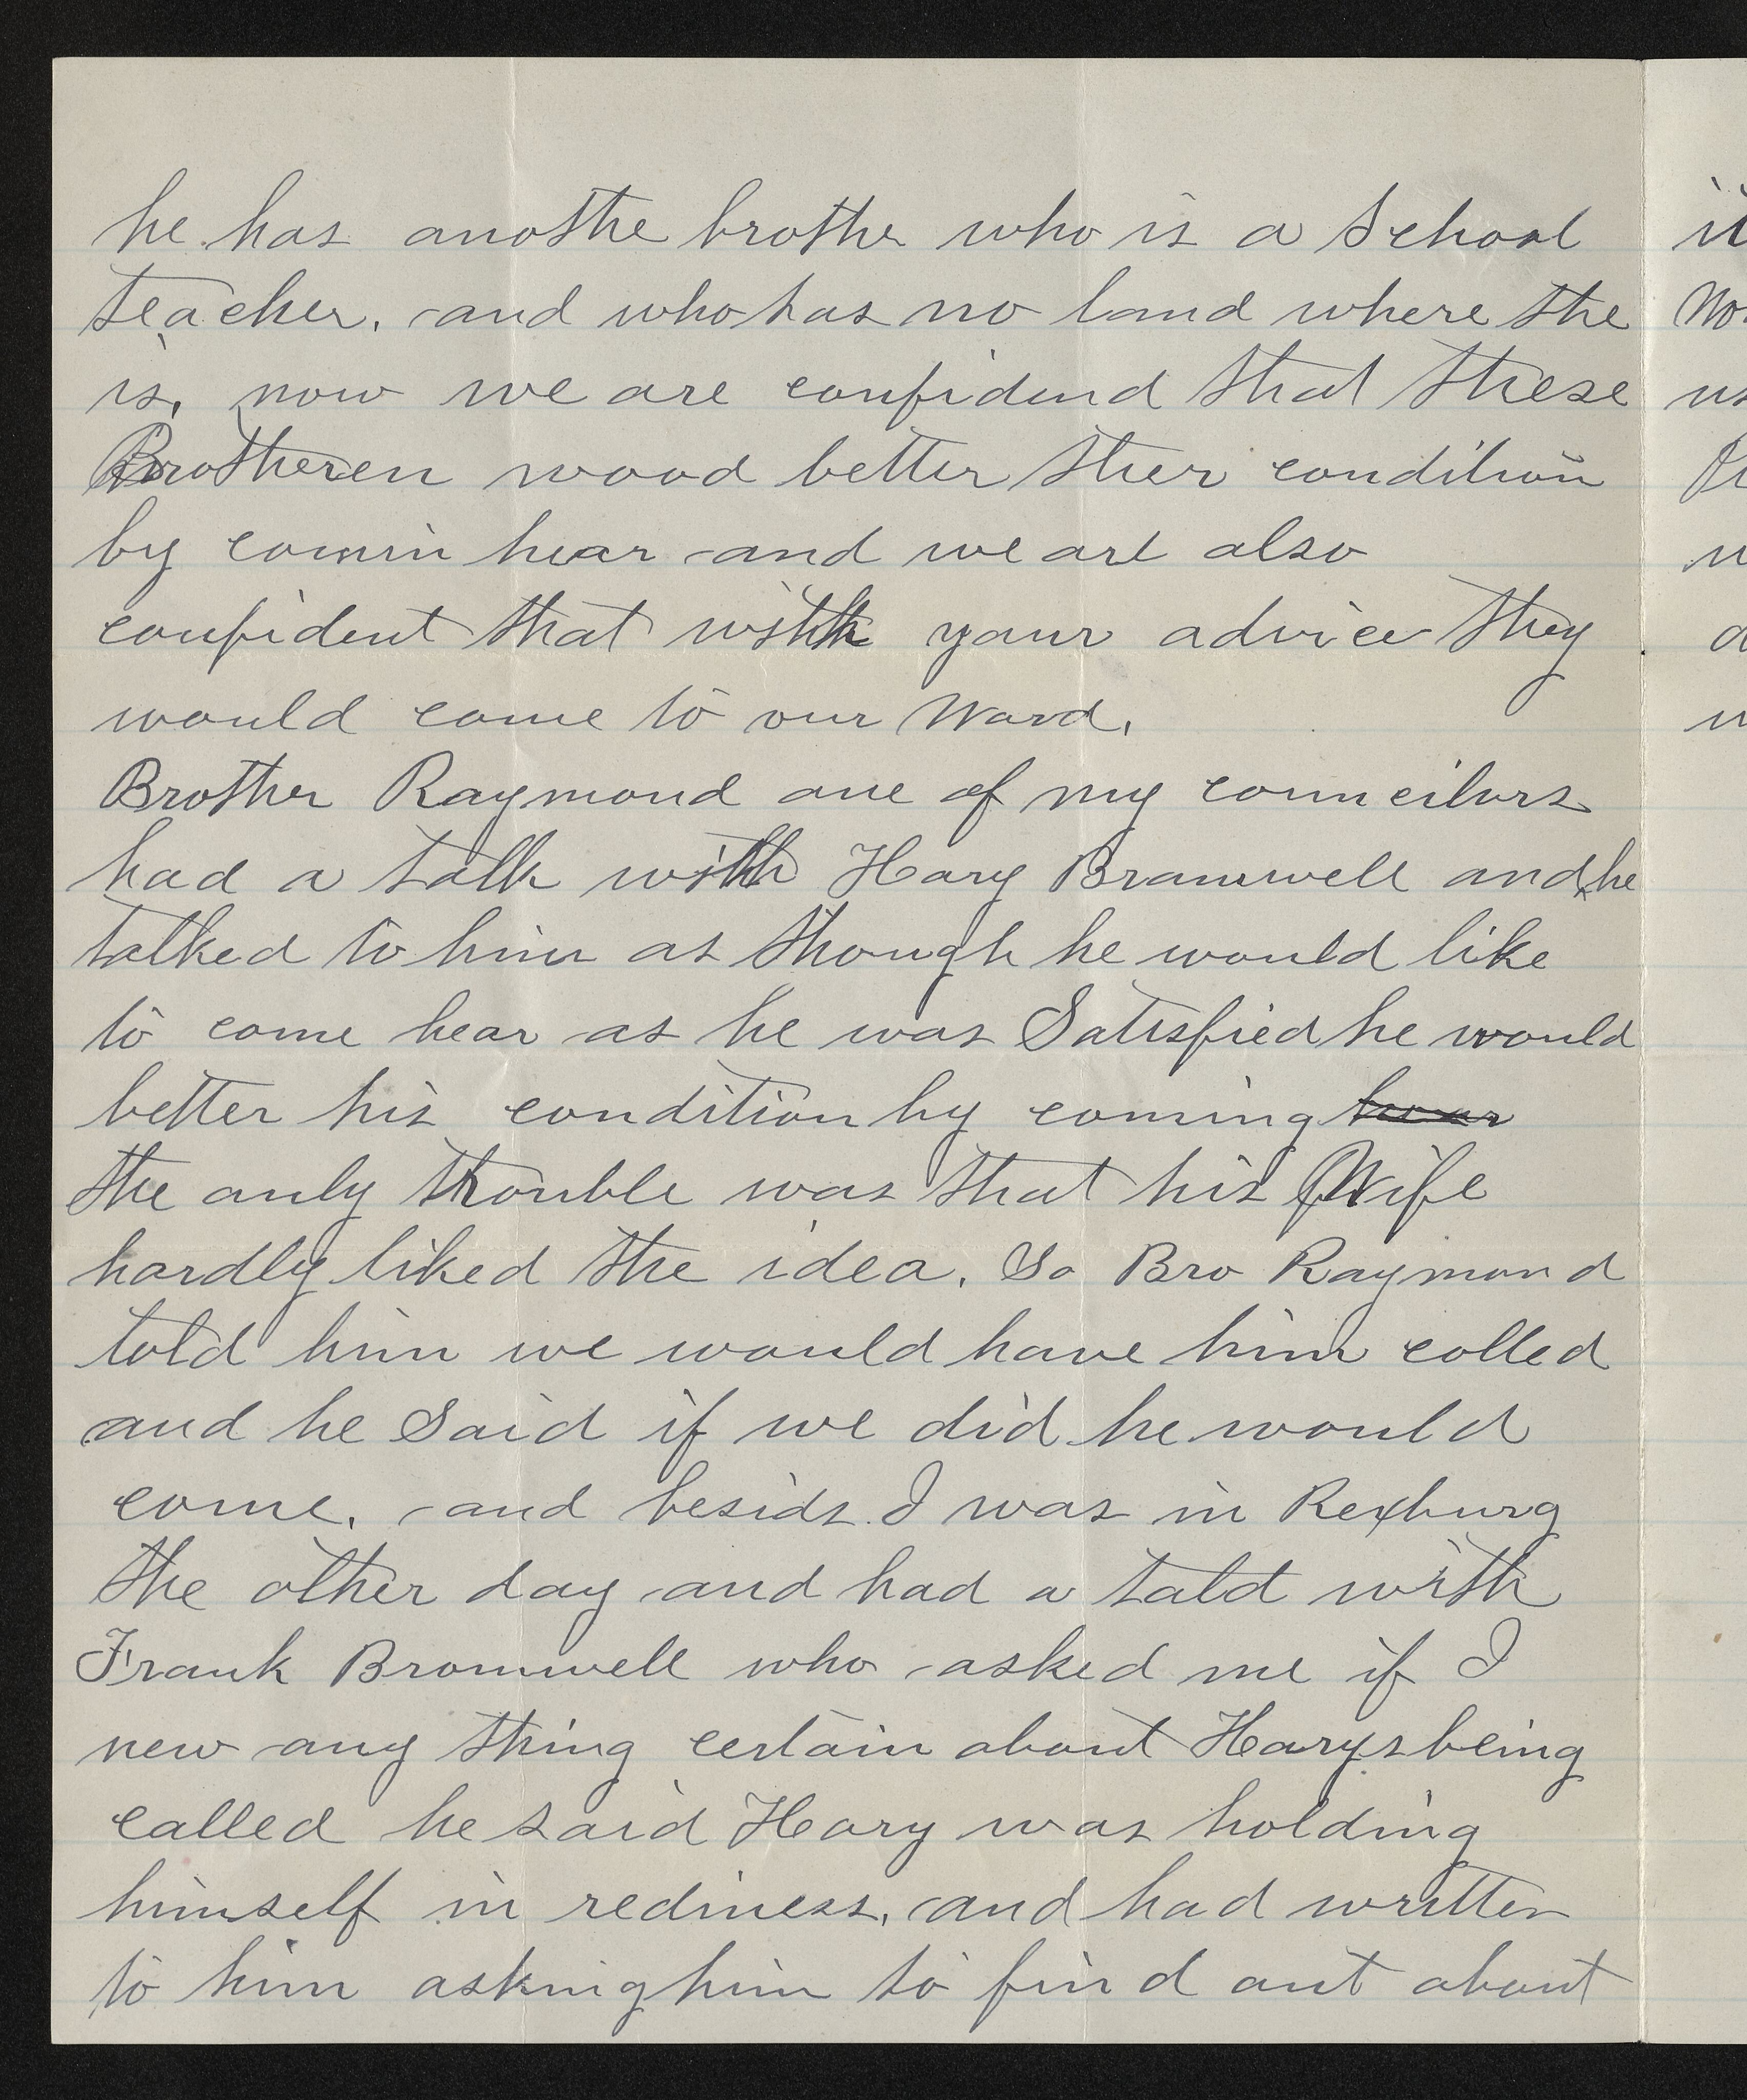 he has anothe brothe who is a School
teacher, and who has no land where the
is, now we are confidend that these
Brotheren wood better ther condition
by comin hear and we are also
confident that with your advice they
would come to our Ward.
Brother Raymond one of my councilors
had a talk with Hary Bramwell and he
talked to him as though he would like
to come hear as he was Satisfied he would
better his condition by coming hear
the only trouble was that his Wife
hardly liked the idea. So Bro Raymond
told him we would have him colled
and he Said if we did he would
come. and besids I was in Rexburg
the other day and had a tald with
Frank Bromwell who asked me if I
new any thing certain about Harys being
called he said Hary was holding
himself in rediness, and had written
to him asking him to find out about